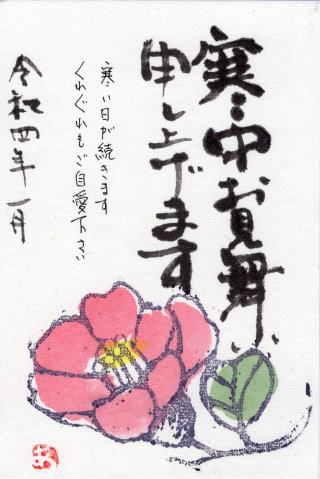 寒中お見舞い
申し上げます
寒い日が続きます
くれぐれもご自愛下さい
令和四年一月